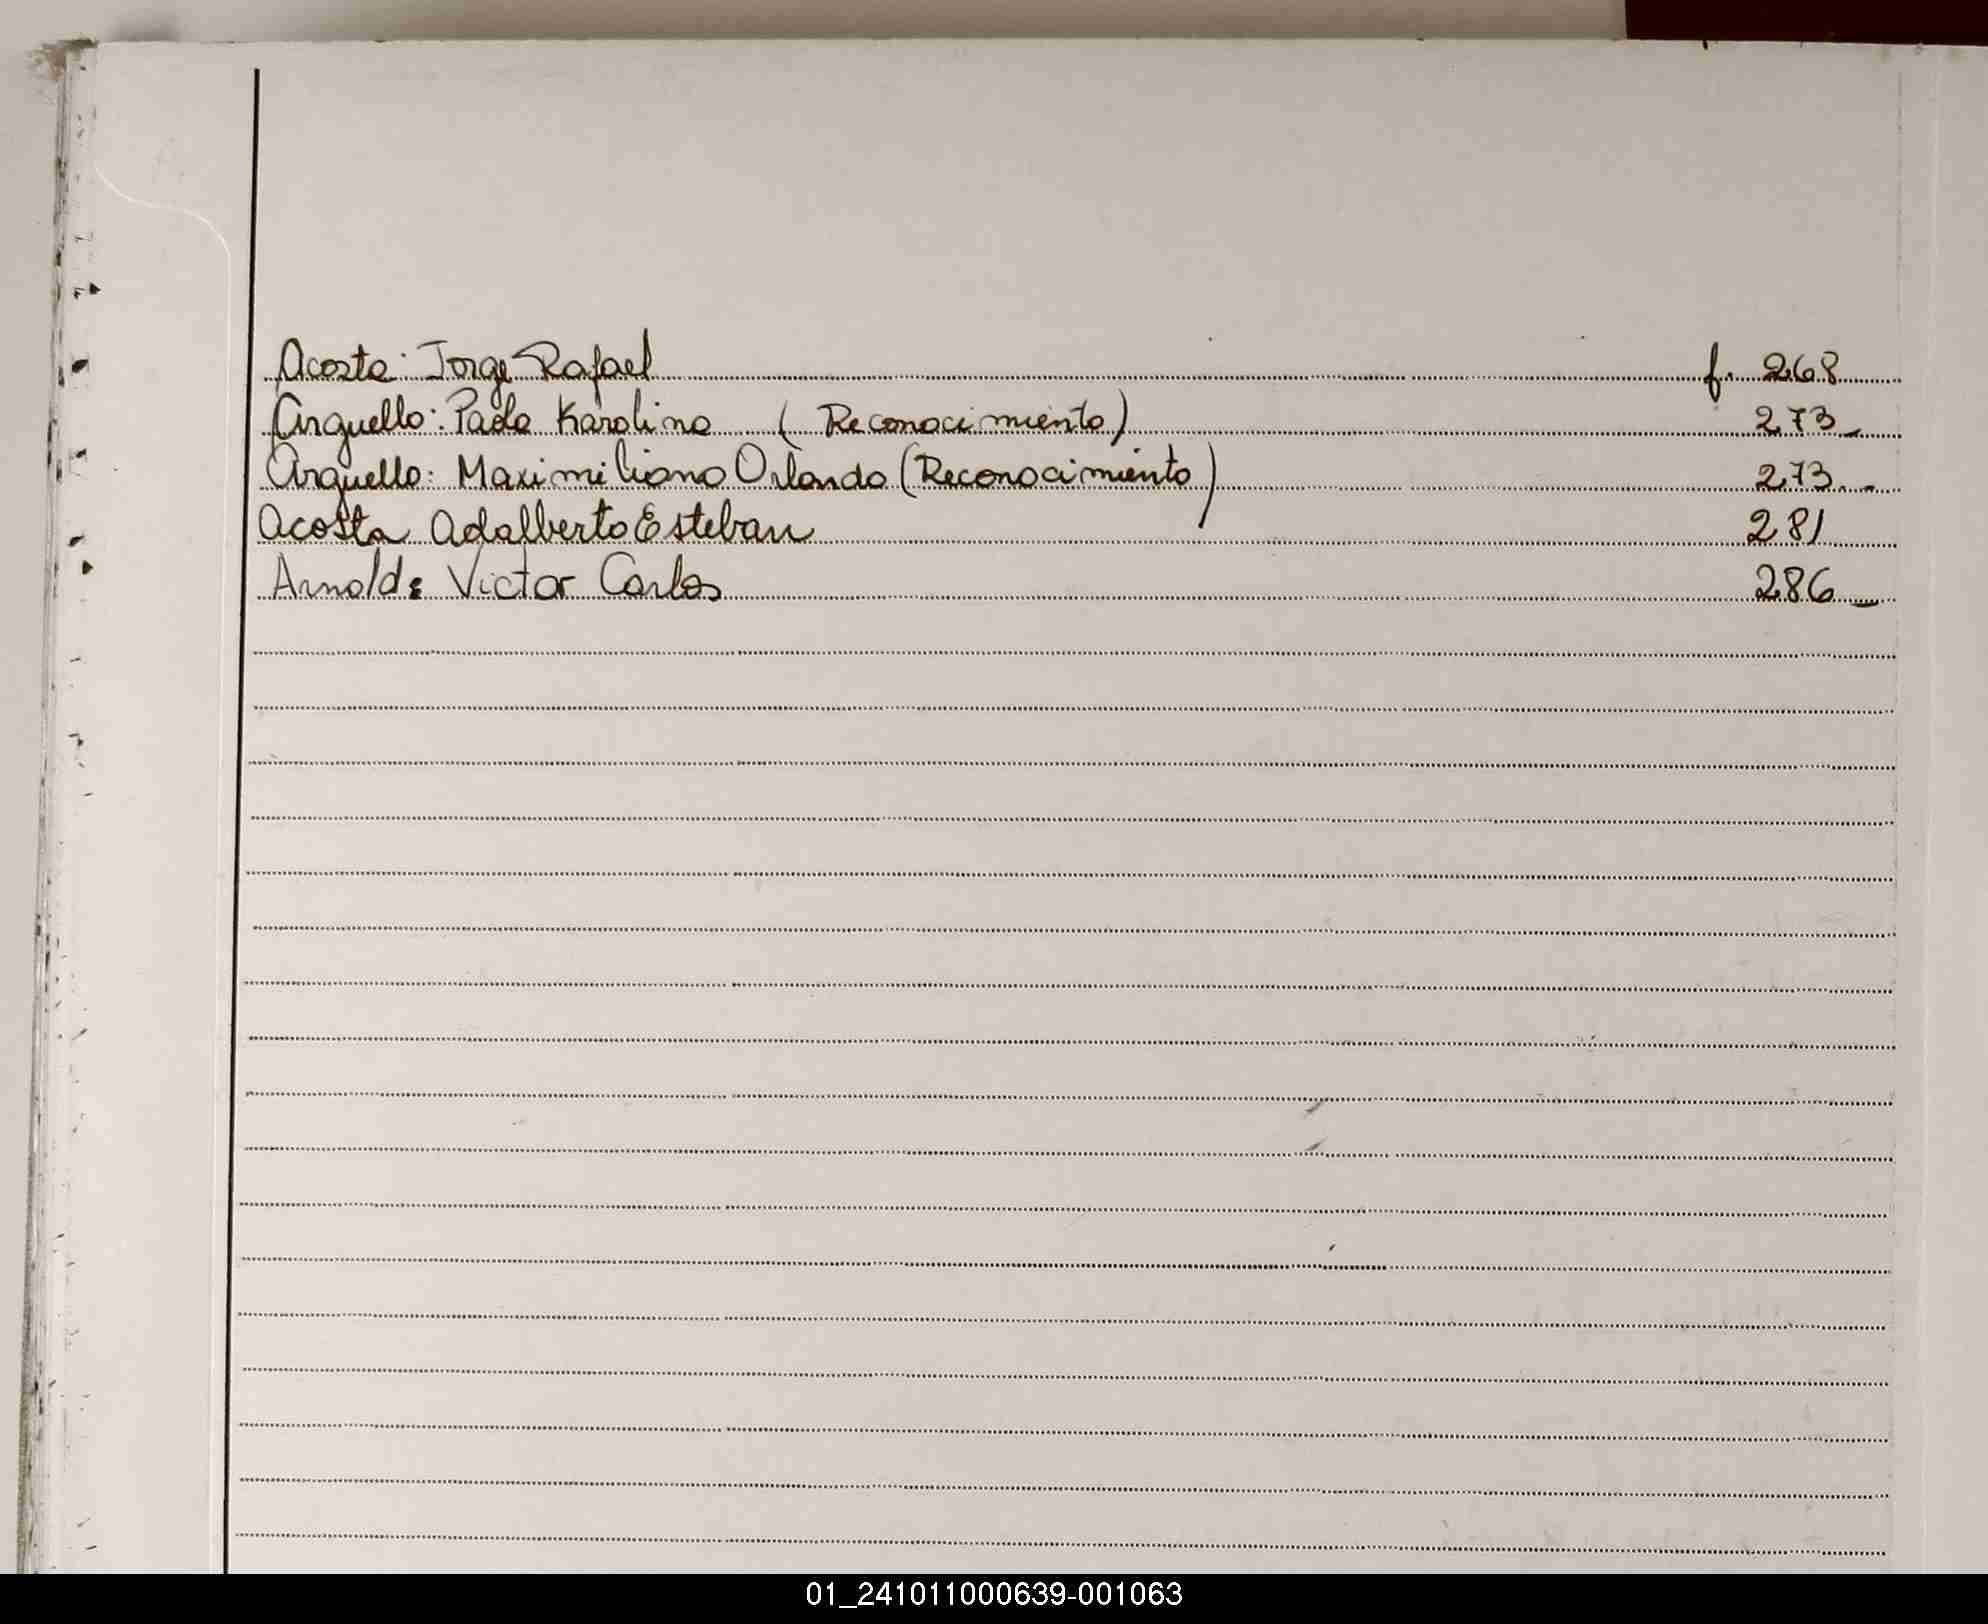 Acosta: Jorge Rafael f. 268
Arguello: Paola Karolina (Reconocimiento) 273_
Arguello: Maximiliano Orlando (Reconocimiento) 273.-
Acosta Adalberto Esteban 281
Arnold: Victor Carlos 286_
01_241011000639-001063